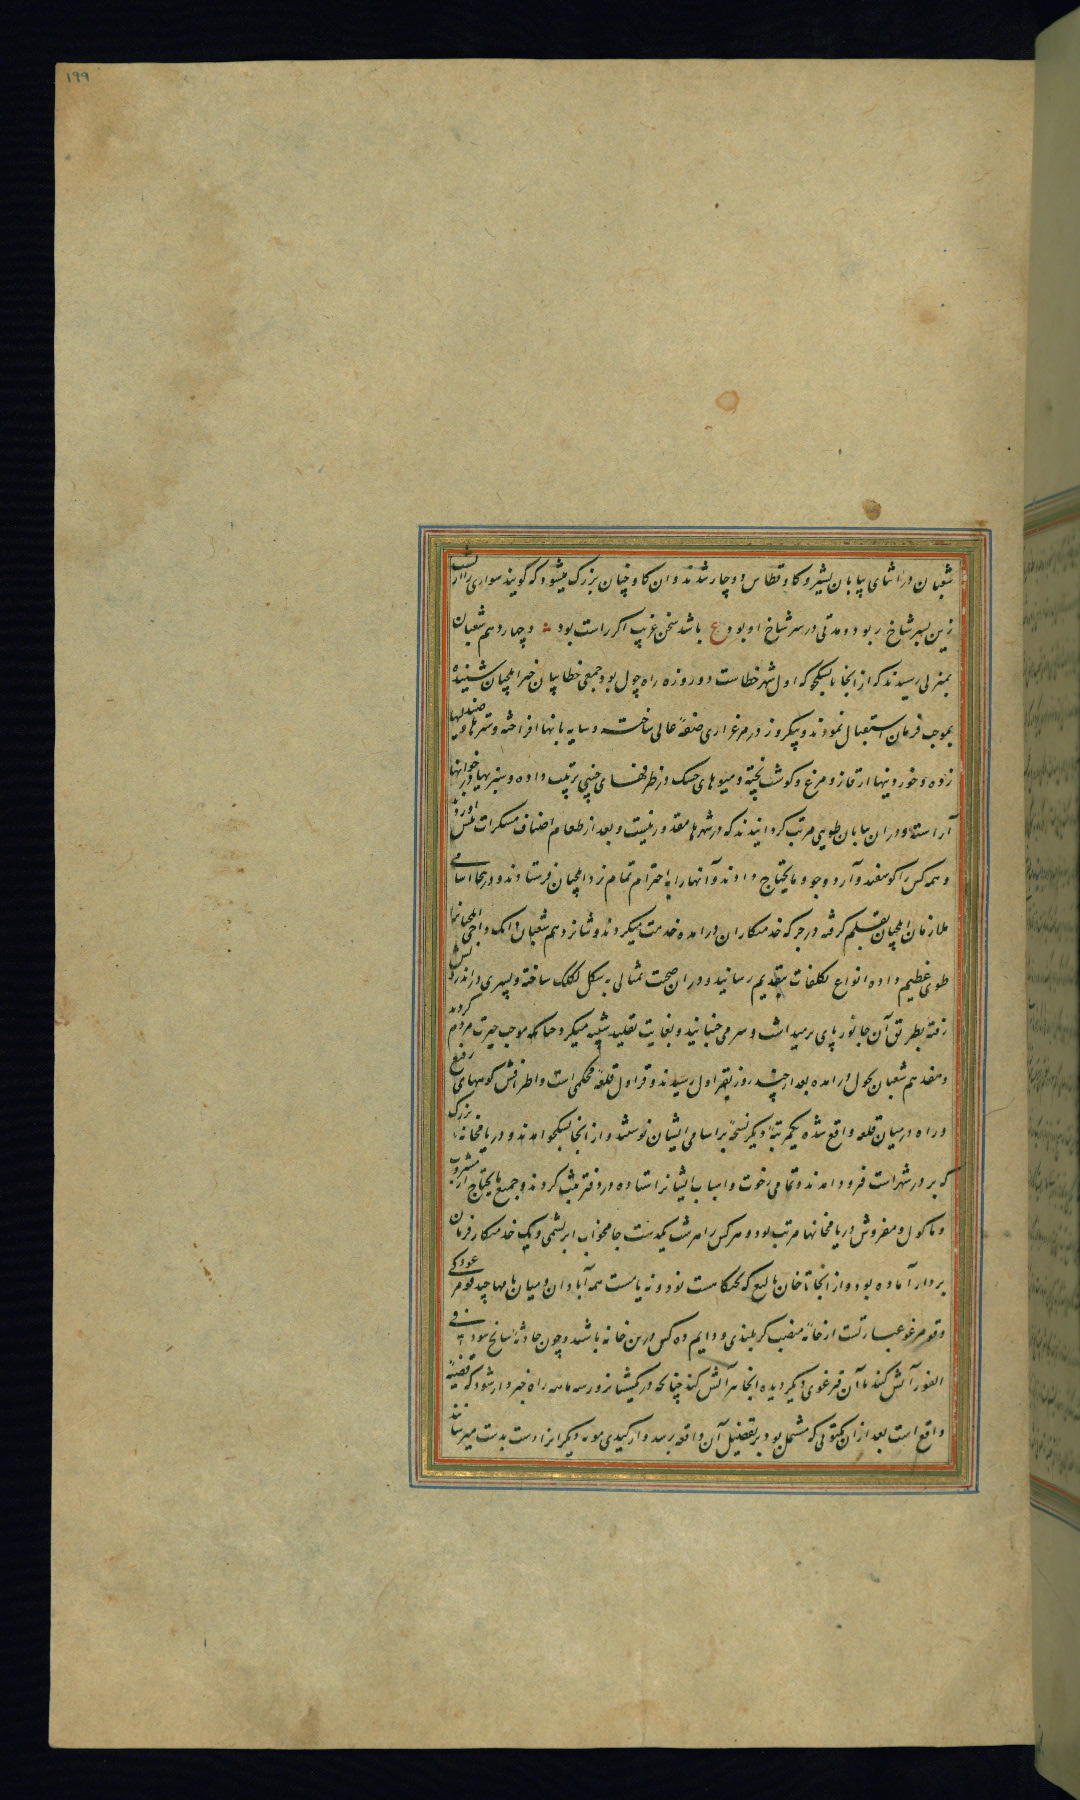 ۱۹۹
شعبان در اثنای بیابان بشیر و کاو قطاس دوچار شدند و ان کاو چنان بزرک میشود که کویند سواری را از پشت
زین بسر شاخ ربود و مدتی در سر شاخ او بود ع باشد سخن غریب اکر راست بود و چهاردهم شعبان
بمنزلی رسیدند که از انجا تا بسکجو که اول شهر خطاست ده روزه راه چول بود و جمعی خطاییان خبر ایلچیان شنیده
بموجب فرمان استقبال نمودند و بیکروز در مرغزاری صفهٔ عالی ساخته و سایه بانها افراخته و شیرها و صندلیها
زده و خوردنیها از قاز و مرغ و کوشت پخته و میوهای خشک در ظرفهای چینی ترتیب داده و سبزیها در خوانها
آراسته و در ان بیابان طویی مرتب کردانیدند که در شهرها مقدور نیست و بعد از طعام اصناف مسکرات پیش اوردند
و همه کس را کوسفند و آرد و جو و مایحتاج دادند و آنها را به احترام تمام نزد ایلچیان فرستادند و در همانجا اسامی
ملازمان ایلچیان بقلم کرفته در جرکه خدمتکاران درامده خدمت میکردند و شانزدهم شعبان دانک داجی ایلچیانرا
طوی عظیم داده انواع تکلفات بتقدیم رسانید و در ان صحبت تمثالی به شکل لکلک ساخته و پسری در اندرونش
رفته بطریق آن جانور پای برمیداشت و سر می جنبانید و بغایت تقلید شبیه میکرد چنانکه موجب حیرت مردم کردید
و هفدهم شعبان بچول درامده بعد از چند روز بقراول رسیدند و قراول قلعهٔ محکمی است و اطرافش کوههای رفیع
و راه در میان قلعه واقع شده یکمرتبهٔ دیکر نسخهٔ بر اسامی ایشان نوشتند و از انجا بسکجو امدند و در یامخانهٔ بزرک
که بر در شهر است فرود امدند و تمامی رخوت و اسباب ایشانرا ستاده در دفتر ثبت کردند و جمیع مایحتاج از مشروب
و ماکول و مفروش در یامخانها مرتب بود و هر کس را هر شب یکدست جامه‌خواب ابریشمی و یک خدمتکار فرمان
بردار آماده بود و از انجا تا خان بالیغ که تختکاهست نود و نه یامست همه آبادان و میان یامها چند قومرغو
و قومرغو عبارتست از خانهٔ شصت کز بلندی و دایم ده کس در ین خانه باشند و چون حادثهٔ سانح شود فی
الفور آتش کنند تا آن قرغوی دیکر دیده انجا هم آتش کند چنانچه در یکشبانروز سه ماهه راه خبردار شود که قضیهٔ
واقع است بعد از ان مکتوبی که مشتمل بود بر تفصیل آن واقعه برسد و از کیدی فو به دیکر انرا دست بدست میرسانند